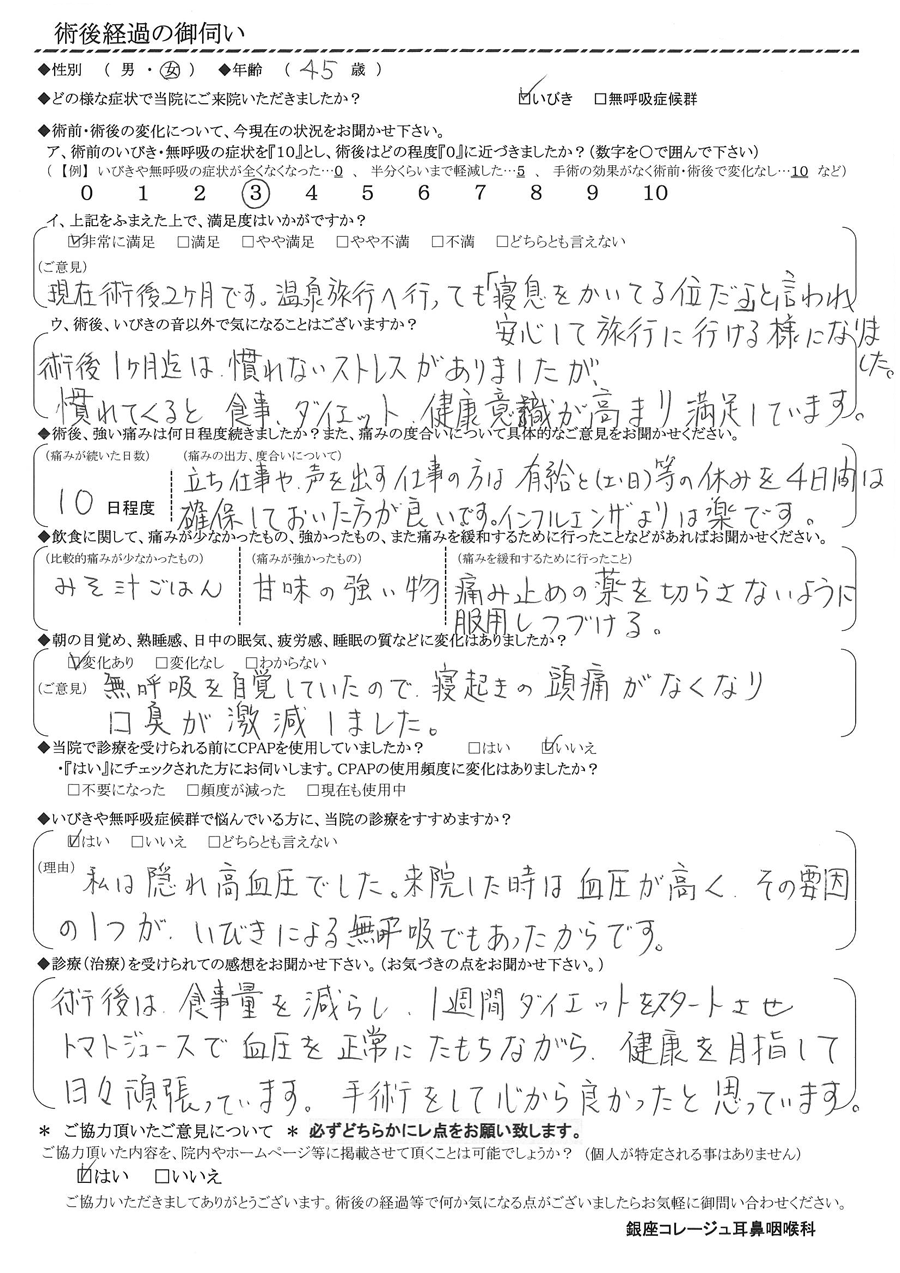 術後経過の御伺い
◆性別 （ 男 ・ 女 ） ◆年齢 （ 45 歳 ）
◆どの様な症状で当院にご来院いただきましたか？ ☑いびき □無呼吸症候群
◆術前・術後の変化について、今現在の状況をお聞かせ下さい。
ア、術前のいびき・無呼吸の症状を『10』とし、術後はどの程度『0』に近づきましたか？（数字を○で囲んで下さい）
（ 【例】 いびきや無呼吸の症状が全くなくなった…0 、 半分くらいまで軽減した…5 、 手術の効果がなく術前・術後で変化なし…10 など）
0 1 2 3 4 5 6 7 8 9 10
イ、上記をふまえた上で、満足度はいかがですか？
☑非常に満足 □満足 □やや満足 □やや不満 □不満 □どちらとも言えない
（ご意見）
現在術後2ヶ月です。温泉旅行へ行っても「寝息をかいてる位だ」と言われ
安心して旅行に行ける様になりま
した。
ウ、術後、いびきの音以外で気になることはございますか？
術後1ヶ月迄は、慣れないストレスがありましたが、
慣れてくると 食事、ダイエット、健康意識が高まり満足しています。
◆術後、強い痛みは何日程度続きましたか？また、痛みの度合いについて具体的なご意見をお聞かせください。
（痛みが続いた日数） （痛みの出方、度合いについて）
10 日程度
立ち仕事や、声を出す仕事の方は 有給と(土・日)等の休みを4日間は
確保しておいた方が良いです。インフルエンザよりは楽です。
◆飲食に関して、痛みが少なかったもの、強かったもの、また痛みを緩和するために行ったことなどがあればお聞かせください。
（比較的痛みが少なかったもの） （痛みが強かったもの） （痛みを緩和するために行ったこと）
みそ汁ごはん 甘味の強い物 痛み止めの薬を切らさないように
服用しつづける。
◆朝の目覚め、熟睡感、日中の眠気、疲労感、睡眠の質などに変化はありましたか？
☑変化あり □変化なし □わからない
（ご意見） 無呼吸を自覚していたので、寝起きの頭痛がなくなり
口臭が激減しました。
◆当院で診療を受けられる前にCPAPを使用していましたか？ □はい ☑いいえ
・『はい』にチェックされた方にお伺いします。CPAPの使用頻度に変化はありましたか？
□不要になった □頻度が減った □現在も使用中
◆いびきや無呼吸症候群で悩んでいる方に、当院の診療をすすめますか？
☑はい □いいえ □どちらとも言えない
（理由） 私は隠れ高血圧でした。来院した時は血圧が高く、その要因
の1つが、いびきによる無呼吸でもあったからです。
◆診療（治療）を受けられての感想をお聞かせ下さい。（お気づきの点をお聞かせ下さい。）
術後は、食事量を減らし、1週間ダイエットをスタートさせ
トマトジュースで血圧を正常にたもちながら、健康を目指して
日々頑張っています。 手術をして心から良かったと思っています。
＊ ご協力頂いたご意見について ＊ 必ずどちらかにレ点をお願い致します。
ご協力頂いた内容を、院内やホームページ等に掲載させて頂くことは可能でしょうか？ （個人が特定される事はありません）
☑はい □いいえ
ご協力いただきましてありがとうございます。術後の経過等で何か気になる点がございましたらお気軽に御問い合わせください。
銀座コレージュ耳鼻咽喉科